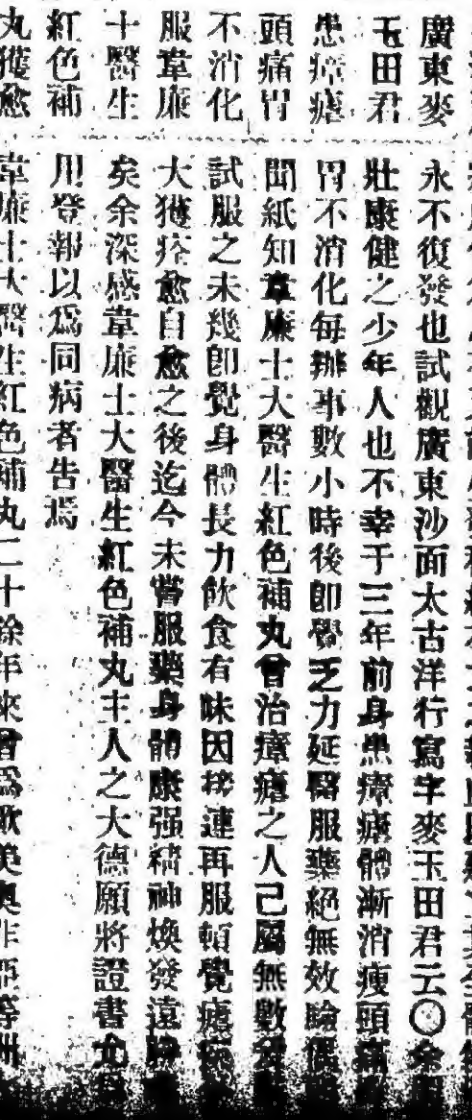 廣東麥
玉田君
患瘴瘧
頭痛胃
不消化
服韋廉
十醫生
紅色補
丸獲愈
永不復發也試觀廣東沙面太古洋行寫字麥玉田君云〇余
壯康健之少年人也不幸于三年前身患瘴瘧體漸消瘦頭痛
胃不消化每辦事數小時後即覺乏力延醫服藥絕無效驗偶
聞紙知韋廉士大醫生紅色補丸曾治瘴瘧之人已屬無數
試服之未幾即覺身體長力飲食有味因接連再服頓覺瘧疾
大獲痊愈自愈之後迄今未嘗服藥身體康强精神煥發遠
矣余深感韋廉士大醫生紅色補丸主人之大德願將證書
用登報以爲同病者告焉
韋廉士大醫生紅色補丸二十餘年來曾爲歐美奧非亞等洲